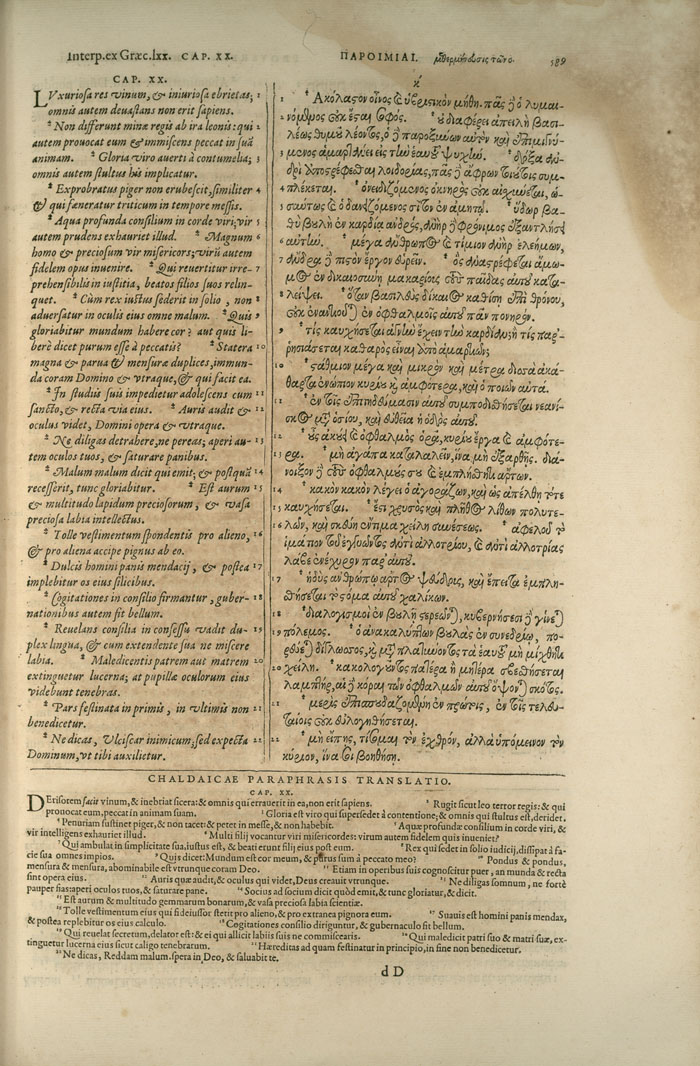 Interp. ex Græc. lxx. CAP. XX.
CAP. XX.
LVxuriosa res vinum, & iniuriosa ebrietas; 1
omnis autem deuastans non erit sapiens.
* Non differunt minæ regis ab ira leonis: qui 2
autem prouocat eum & immiscens peccat in suā
animam. * Gloria viro auerti à contumelia; 3
omnis autem stultus his implicatur.
* Exprobratus piger non erubescit, similiter 4
& qui fœneratur triticum in tempore messis.
* Aqua profunda consilium in corde viri; vir 5
autem prudens exhauriet illud. * Magnum 6
homo & preciosum vir misericors; virū autem
fidelem opus inuenire. * Qui reuertitur irre- 7
prehensibilis in iustitia, beatos filios suos relin-
quet. * Cùm rex iustus sederit in solio, non 8
aduersatur in oculis eius omne malum. * Quis 9
gloriabitur mundum habere cor? aut quis li-
berè dicet purum esse à peccatis? * Statera 10
magna & parua & mensuræ duplices, immun-
da coram Domino & vtraque, & qui facit ea.
* In studiis suis impedietur adolescens cum 11
sancto, & recta via eius. * Auris audit & 12
oculus videt, Domini opera & vtraque.
* Ne diligas detrahere, ne pereas; aperi au- 13
tem oculos tuos, & saturare panibus.
* Malum malum dicit qui emit; & postquā 14
recesserit, tunc gloriabitur. * Est aurum 15
& multitudo lapidum preciosorum, & vasa
preciosa labia intellectus.
* Tolle vestimentum spondentis pro alieno, 16
& pro aliena accipe pignus ab eo.
* Dulcis homini panis mendacij, & postea 17
implebitur os eius silicibus.
* Cogitationes in consilio firmantur, guber- 18
nationibus autem fit bellum.
* Reuelans consilia in consessu vadit du- 19
plex lingua, & cum extendente sua ne miscere
labia. * Maledicentis patrem aut matrem 20
extinguetur lucerna; at pupillæ oculorum eius
videbunt tenebras.
* Pars festinata in primis, in vltimis non 21
benedicetur.
* Ne dicas, Vlciscar inimicum; sed expecta 22
Dominum, vt tibi auxilietur.
ΠΑΡΟΙΜΙΑΙ. 589
κ
1 * Ἀκόλαστον οἶνος καὶ ὑβριστικὸν μέθη. πᾶς δὲ ὁ λυμαι-
2 νόμενος οὐκ ἔσται σοφός. * οὐ διαφέρει ἀπειλὴ βασι-
λέως θυμοῦ λέοντος, ὁ δὲ παροξύνων αὐτὸν καὶ ἐπιμιγνύ-
3 μενος ἁμαρτάνει εἰς τὴν ἑαυτοῦ ψυχήν. * δόξα ἀν-
δρὶ ἀποστρέφεσθαι λοιδορίας, πᾶς δὲ ἄφρων τοιούτοις συμ-
4 πλέκεται. * ὀνειδιζόμενος ὀκνηρὸς οὐκ αἰσχύνεται, ὡ-
5 σαύτως καὶ ὁ δανιζόμενος σῖτον ἐν ἀμητῷ. * ὕδωρ βα-
θὺ βουλὴ ἐν καρδίᾳ ἀνδρός, ἀνὴρ δὲ φρόνιμος ἐξαντλήσει
6 αὐτήν. * μέγα ἄνθρωπος καὶ τίμιον ἀνὴρ ἐλεήμων,
7 ἄνδρα δὲ πιστὸν ἔργον εὑρεῖν. * ὃς ἀναστρέφεται ἄμω-
μος ἐν δικαιοσύνῃ μακαρίους τοὺς παῖδας αὐτοῦ κατα-
8 λείψει. * ὅταν βασιλεὺς δίκαιος καθίσῃ ἐπὶ θρόνου,
οὐκ ἐναντιοῦται ἐν ὀφθαλμοῖς αὐτοῦ πᾶν πονηρόν.
9 * τίς καυχήσεται ἁγνὴν ἔχειν τὴν καρδίαν; ἢ τίς παρ-
ρησιάσεται καθαρὸς εἶναι ἀπὸ ἁμαρτιῶν;
10 * στάθμιον μέγα καὶ μικρὸν καὶ μέτρα δισσὰ ἀκά-
θαρτα ἐνώπιον κυρίου καὶ ἀμφότερα, καὶ ὁ ποιῶν αὐτά.
11 * ἐν τοῖς ἐπιτηδεύμασιν αὐτοῦ συμποδισθήσεται νεανί-
σκος μετὰ ὁσίου, καὶ εὐθεῖα ἡ ὁδὸς αὐτοῦ.
12 * οὖς ἀκούει καὶ ὀφθαλμὸς ὁρᾷ, κυρίου ἔργα καὶ ἀμφότε-
13 ρα. * μὴ ἀγάπα καταλαλεῖν, ἵνα μὴ ἐξαρθῇς. διά-
νοιξον δὲ τοὺς ὀφθαλμούς σου καὶ ἐμπλήσθητι ἄρτων.
14 * κακὸν κακὸν λέγει ὁ ἀγοράζων, καὶ ὡς ἀπέλθῃ τότε
15 καυχήσεται. * ἔστι χρυσὸς καὶ πλῆθος λίθων πολυτε-
16 λῶν, καὶ σκεύη ἔντιμα χείλη συνέσεως. * ἀφελοῦ τὸ
ἱμάτιον τοῦ ἐγγυῶντος ἀντὶ ἀλλοτρίου, καὶ ἀντὶ ἀλλοτρίας
λάβε ἐνέχυρον παρ' αὐτοῦ.
17 * ἡδὺς ἀνθρώπῳ ἄρτος ψεύδους, καὶ ἔπειτα ἐμπλη-
θήσεται τὸ στόμα αὐτοῦ χαλίκων.
18 * διαλογισμοὶ ἐν βουλῇ στερεοῦνται, κυβερνήσεσι δὲ γίνεται
19 πόλεμος. * ὁ ἀνακαλύπτων βουλὰς ἐν συνεδρίῳ, πο-
ρεύεται δίγλωσσος, καὶ μετὰ πλατύνοντος τὰ ἑαυτοῦ μὴ μίχθητι
20 χείλη. * κακολογοῦντος πατέρα ἢ μητέρα σβεσθήσεται
λαμπτήρ, αἱ δὲ κόραι τῶν ὀφθαλμῶν αὐτοῦ ὄψονται σκότος.
21 * μερὶς ἐπισπουδαζομένη ἐν πρώτοις, ἐν τοῖς τελευ-
ταίοις οὐκ εὐλογηθήσεται.
22 * μὴ εἴπῃς, τίσομαι τὸν ἐχθρόν, ἀλλὰ ὑπόμεινον τὸν
κύριον, ἵνα σοι βοηθήσῃ.
CHALDAICAE PARAPHRASIS TRANSLATIO.
CAP. XX.
DErisorem facit vinum, & inebriat sicera: & omnis qui errauerit in ea, non erit sapiens. * Rugit sicut leo terror regis: & qui
prouocat eum, peccat in animam suam. * Gloria est viro qui supersedet à contentione; & omnis qui stultus est, deridet.
* Penuriam sustinet piger, & non tacet: & petet in messe, & non habebit. * Aquæ profundæ consilium in corde viri, &
vir intelligens exhauriet illud. * Multi filij vocantur viri misericordes: virum autem fidelem quis inueniet?
* Qui ambulat in simplicitate sua, iustus est, & beati erunt filij eius post eum. * Rex qui sedet in solio iudicij, dissipat à fa-
cie sua omnes impios. * Quis dicet: Mundum est cor meum, & purus sum à peccato meo? * Pondus & pondus,
mensura & mensura, abominabile est vtrunque coram Deo. * Etiam in operibus suis cognoscitur puer, an munda & recta
sint opera eius. * Auris quæ audit, & oculus qui videt, Deus creauit vtrunque. * Ne diligas somnum, ne fortè
pauper fias: aperi oculos tuos, & saturare pane. * Socius ad socium dicit quòd emit, & tunc gloriatur, & dicit.
* Est aurum & multitudo gemmarum bonarum, & vasa preciosa labia scientiæ.
* Tolle vestimentum eius qui fideiussor stetit pro alieno, & pro extranea pignora eum. * Suauis est homini panis mendax,
& postea replebitur os eius calculo. * Cogitationes consilio diriguntur, & gubernaculo fit bellum.
* Qui reuelat secretum, delator est: & ei qui allicit labiis suis ne commiscearis. * Qui maledicit patri suo & matri suæ, ex-
tinguetur lucerna eius sicut caligo tenebrarum. * Hæreditas ad quam festinatur in principio, in fine non benedicetur.
* Ne dicas, Reddam malum. spera in Deo, & saluabit te.
dD